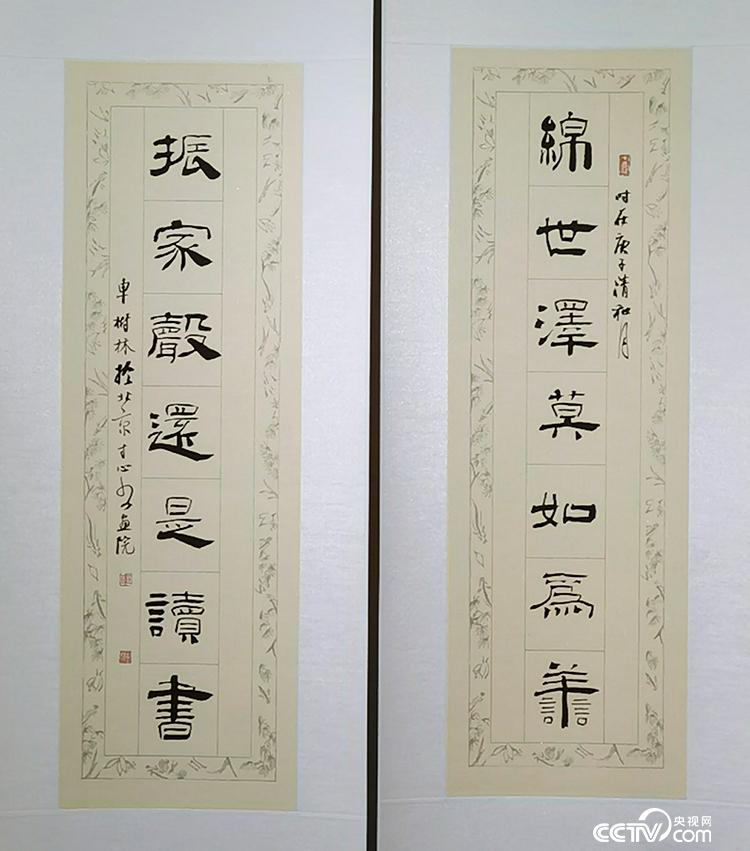 綿世澤莫如爲譱
时在庚子清和月
振家聲還是讀書
車樹林於北京寸心書画院
央视网
CCTV.com